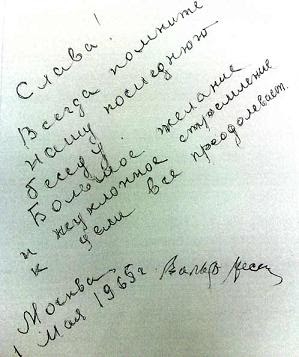 Слава!
Всегда помните
нашу последнюю
беседу.
Большое желание
и неуклонное стремление
к цели все преодолевает.
Москва
1 Мая 1965г. Вольф Месси